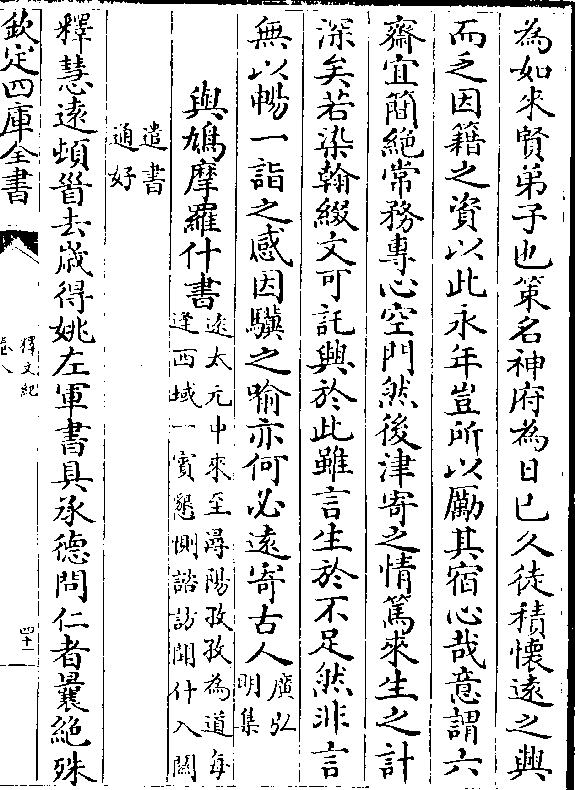 為如來賢弟子也策名神府為日已久徒積懷遠之興
而乏因籍之資以此永年豈所以勵其宿心哉意謂六
齋宜簡絶常務專心空門然後津寄之情篤來生之計
深矣若染翰綴文可託興於此雖言生於不足然非言
無以暢一詣之感因驥之喻亦何必遠寄古人廣弘
明集
與鳩摩羅什書遠太元中來至潯陽孜孜為道每
逢西域一賓懇惻諮訪聞什入關
遣書
通好
釋慧遠頓首去歲得姚左軍書具承德問仁者曩絶殊
欽定四庫全書
釋文紀
卷八
四十一